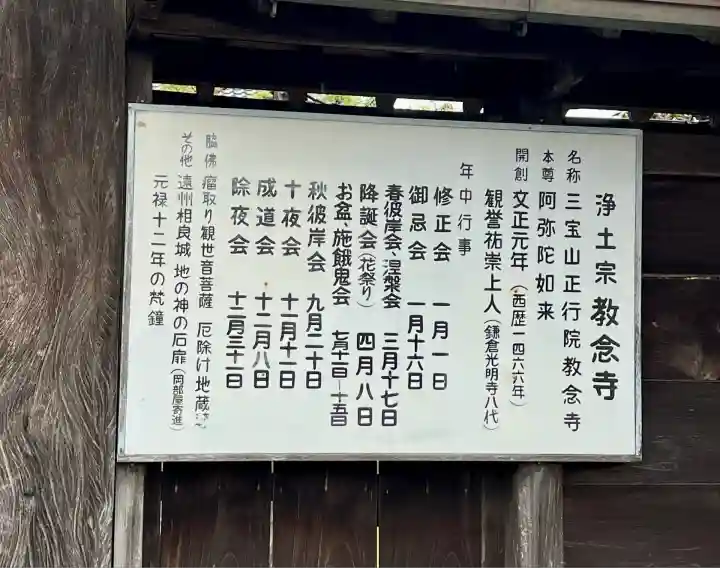 浄土宗 教念寺
名称 三宝山正行院教念寺
本尊 阿弥陀如来
開創 文正元年(西歴一四六六年)
観誉祐崇上人(鎌倉光明寺八代)
年中行事
修正会 一月一日
御忌会 一月十六日
春彼岸会、涅槃会 三月十七日
降誕会(花祭り) 四月八日
お盆、施餓鬼会 七月十三日―十五日
秋彼岸会 九月二十日
十夜会 十一月十一日
成道会 十二月八日
除夜会 十二月三十一日
脇佛 瘤取り観世音菩薩 厄除け地蔵
その他 遠州相良城 地の神の石扉(岡部屋寄進)
元禄十二年の梵鐘